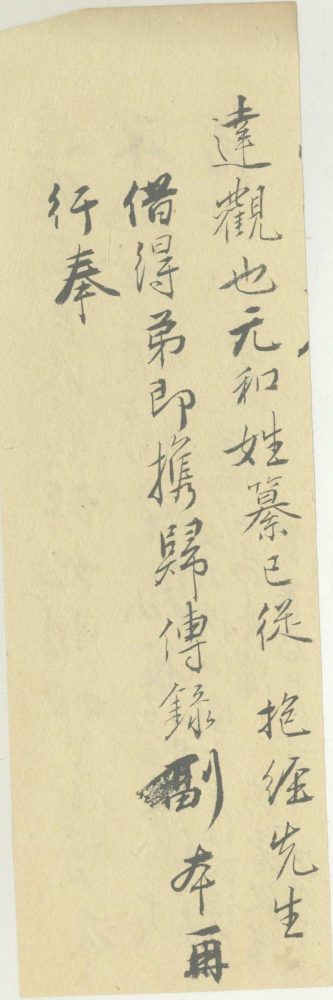 達觀也元和姓纂已從 抱經先生
借得弟即攜歸傳錄副本再
行奉